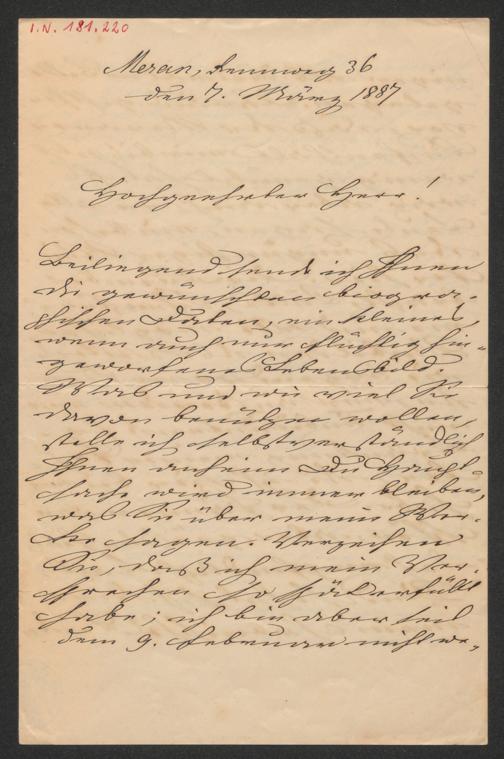 I.N. 181.220
Meran, Rennweg 36
den 7. März 1887
Hochgeehrter Herr!
Beiliegend sende ich Ihnen
die gewünschten biogra-
phischen Daten, ein kleines
wenn auch nur flüchtig hin-
geworfenes Lebensbild.
Was und wie viel Sie
davon benützen wollen,
stelle ich selbstverständlich
Ihnen anheim. Die Haupt-
sache wird immer bleiben,
was Sie über meine Wer-
ke sagen. Verzeihen
Sie, daß ich mein Ver-
sprechen so spät erfüllt
habe; ich bin aber seit
dem 9. Februar nicht we-